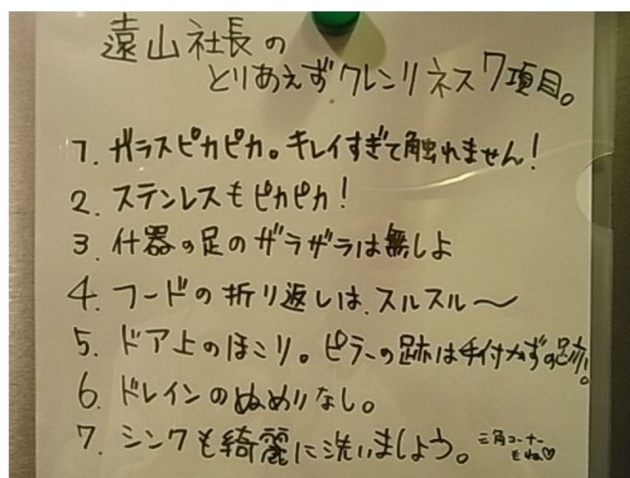 遠山社長の
とりあえずクレンリネス7項目。
1. ガラスピカピカ。キレイすぎて触れません!
2. ステンレスもピカピカ!
3. 什器の足のザラザラは無しよ
4. フードの折り返しは、スルスル〜
5. ドア上のほこり。ピラーの跡は手付かずの跡!。
6. ドレインのぬめりなし。
7. シンクも綺麗に洗いましょう。三角コーナー
もね♡